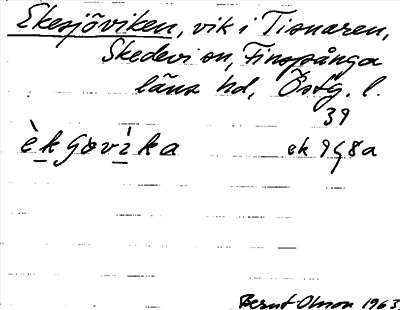 Ekesjöviken, vik i Tisnaren,
Skedevi sn, Finspånga
läns hd, Östg. l.
39
èkgovìka ek 9ζ8a
Bernt Olsson 1963